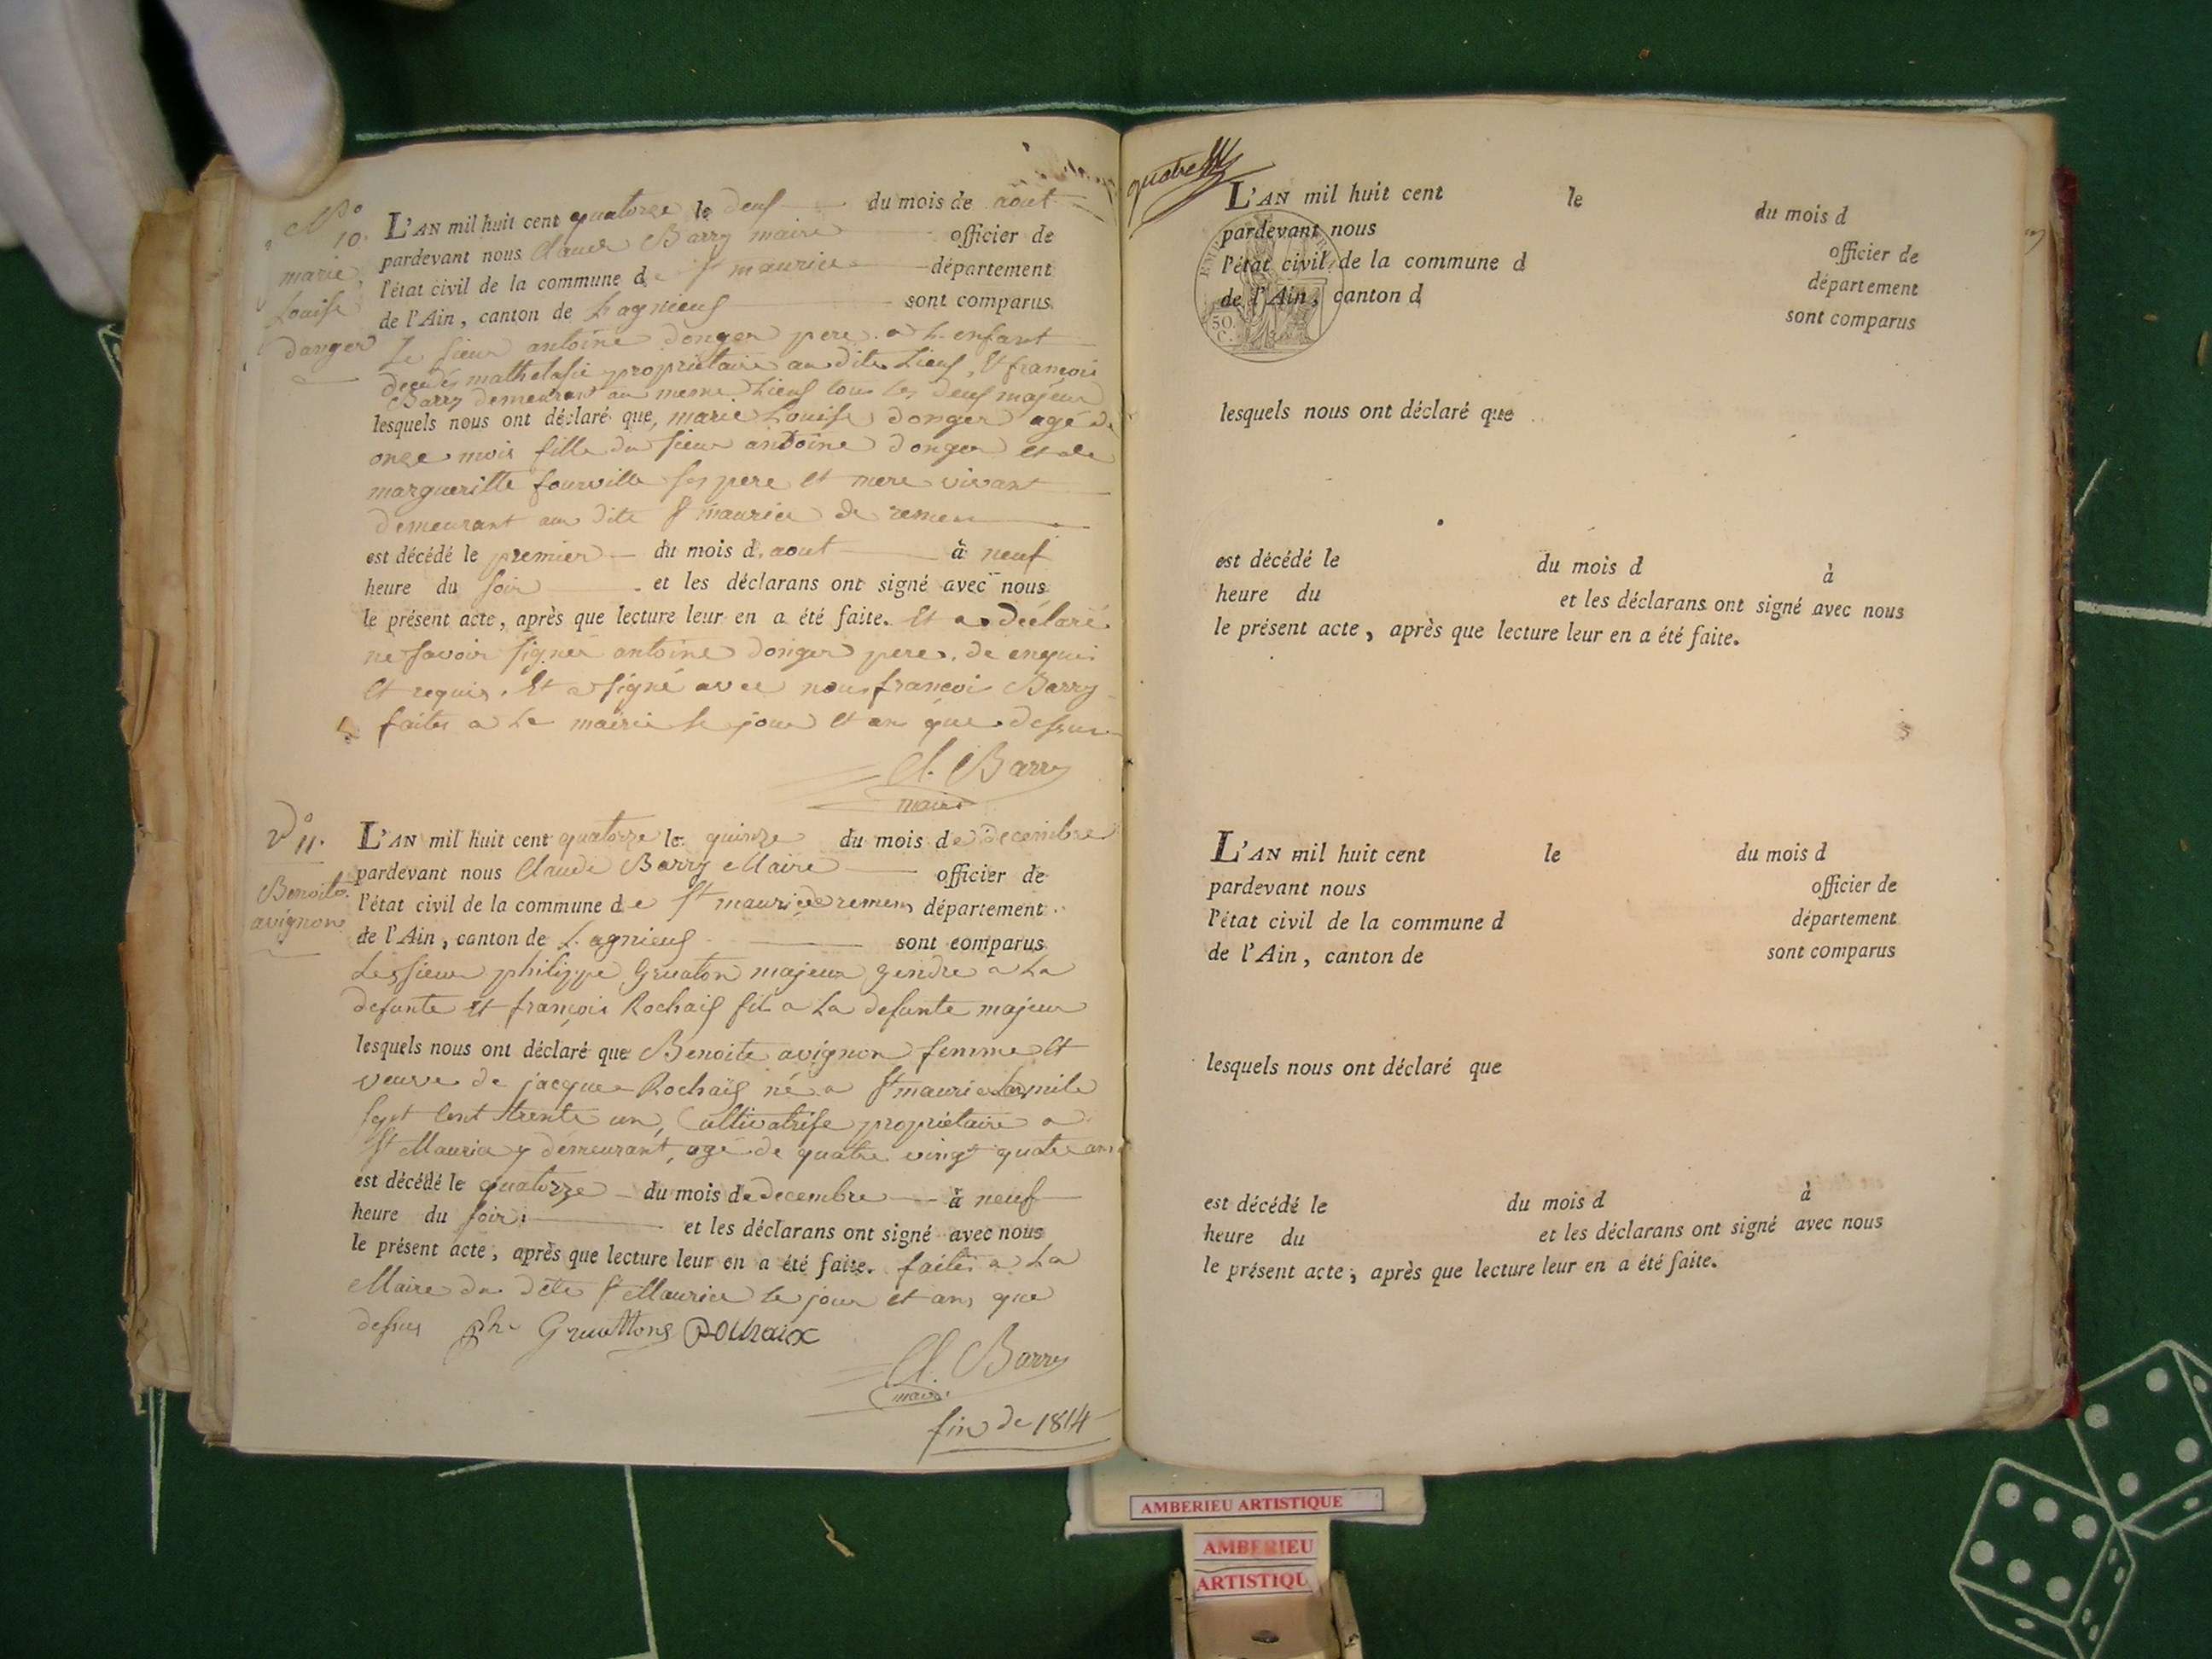 N.o
10.
marie
Louise
donger
L'AN mil huit cent quatorze le deux du mois de aout
pardevant nous claude Barry maire officier de
l'état civil de la commune de St maurice département
de l'Ain, canton de Lagnieux sont comparus
Le sieur antoine donger pere a L'enfant
decedés propriétaire au dite Lieux, Et françois
Barry demeurant au meme Lieux tous les deux majeur
lesquels nous ont déclaré que, marie Louise donger agé de
onze mois fille du sieur antoine donger et de
margueritte fourville ses pere et mere vivant
demeurant au dite St maurice de remens
est décédé le premier du mois d, aout à neuf
heure du soir et les déclarans ont signé avec nous
le présent acte, après que lecture leur en a été faite. Et a déclaré
ne savoir signer antoine donger pere, de enquis
Et requis. Et a signé avec nous françois Barry
faites a La mairie le jour et an que dessus
Cl. Barry
maire
N.o 11.
Benoite
avignon
L'AN mil huit cent quatorze le quinze du mois de decembre
pardevant nous Claude Barry Maire officier de
l'état civil de la commune de St maurice de remens département
de l'Ain, canton de Lagnieux sont comparus
Les sieur philippe Gruaton majeur gendre a La
defunte et françois Rochaix fils a La defunte majeur
lesquels nous ont déclaré que Benoite avignon femme Et
veuve de jacque Rochaix né a St maurice mile
sept cent trente un, Cultivatrise propriétaire a
St Maurice y demeurant, agé de quatre vingt quatre ans
est décédé le quatorze du mois de decembre à neuf
heure du soir et les déclarans ont signé avec nous
le présent acte, après que lecture leur en a été faite. faites a La
Maire du dite St Maurice le jour et ans que
dessus phe Gruattons Rochaix
Cl. Barry
maire
fin de 1814
L'AN mil huit cent le du mois d
pardevant nous officier de
l'état civil de la commune d département
de l'Ain, canton d sont comparus
50
C.
lesquels nous ont déclaré que
est décédé le du mois d à
heure du et les déclarans ont signé avec nous
le présent acte, après que lecture leur en a été faite.
L'AN mil huit cent le du mois d
pardevant nous officier de
l'état civil de la commune d département
de l'Ain, canton de sont comparus
lesquels nous ont déclaré que
est décédé le du mois d à
heure du et les déclarans ont signé avec nous
le présent acte, après que lecture leur en a été faite.
AMBERIEU ARTISTIQUE
AMBERIEU
ARTISTIQU